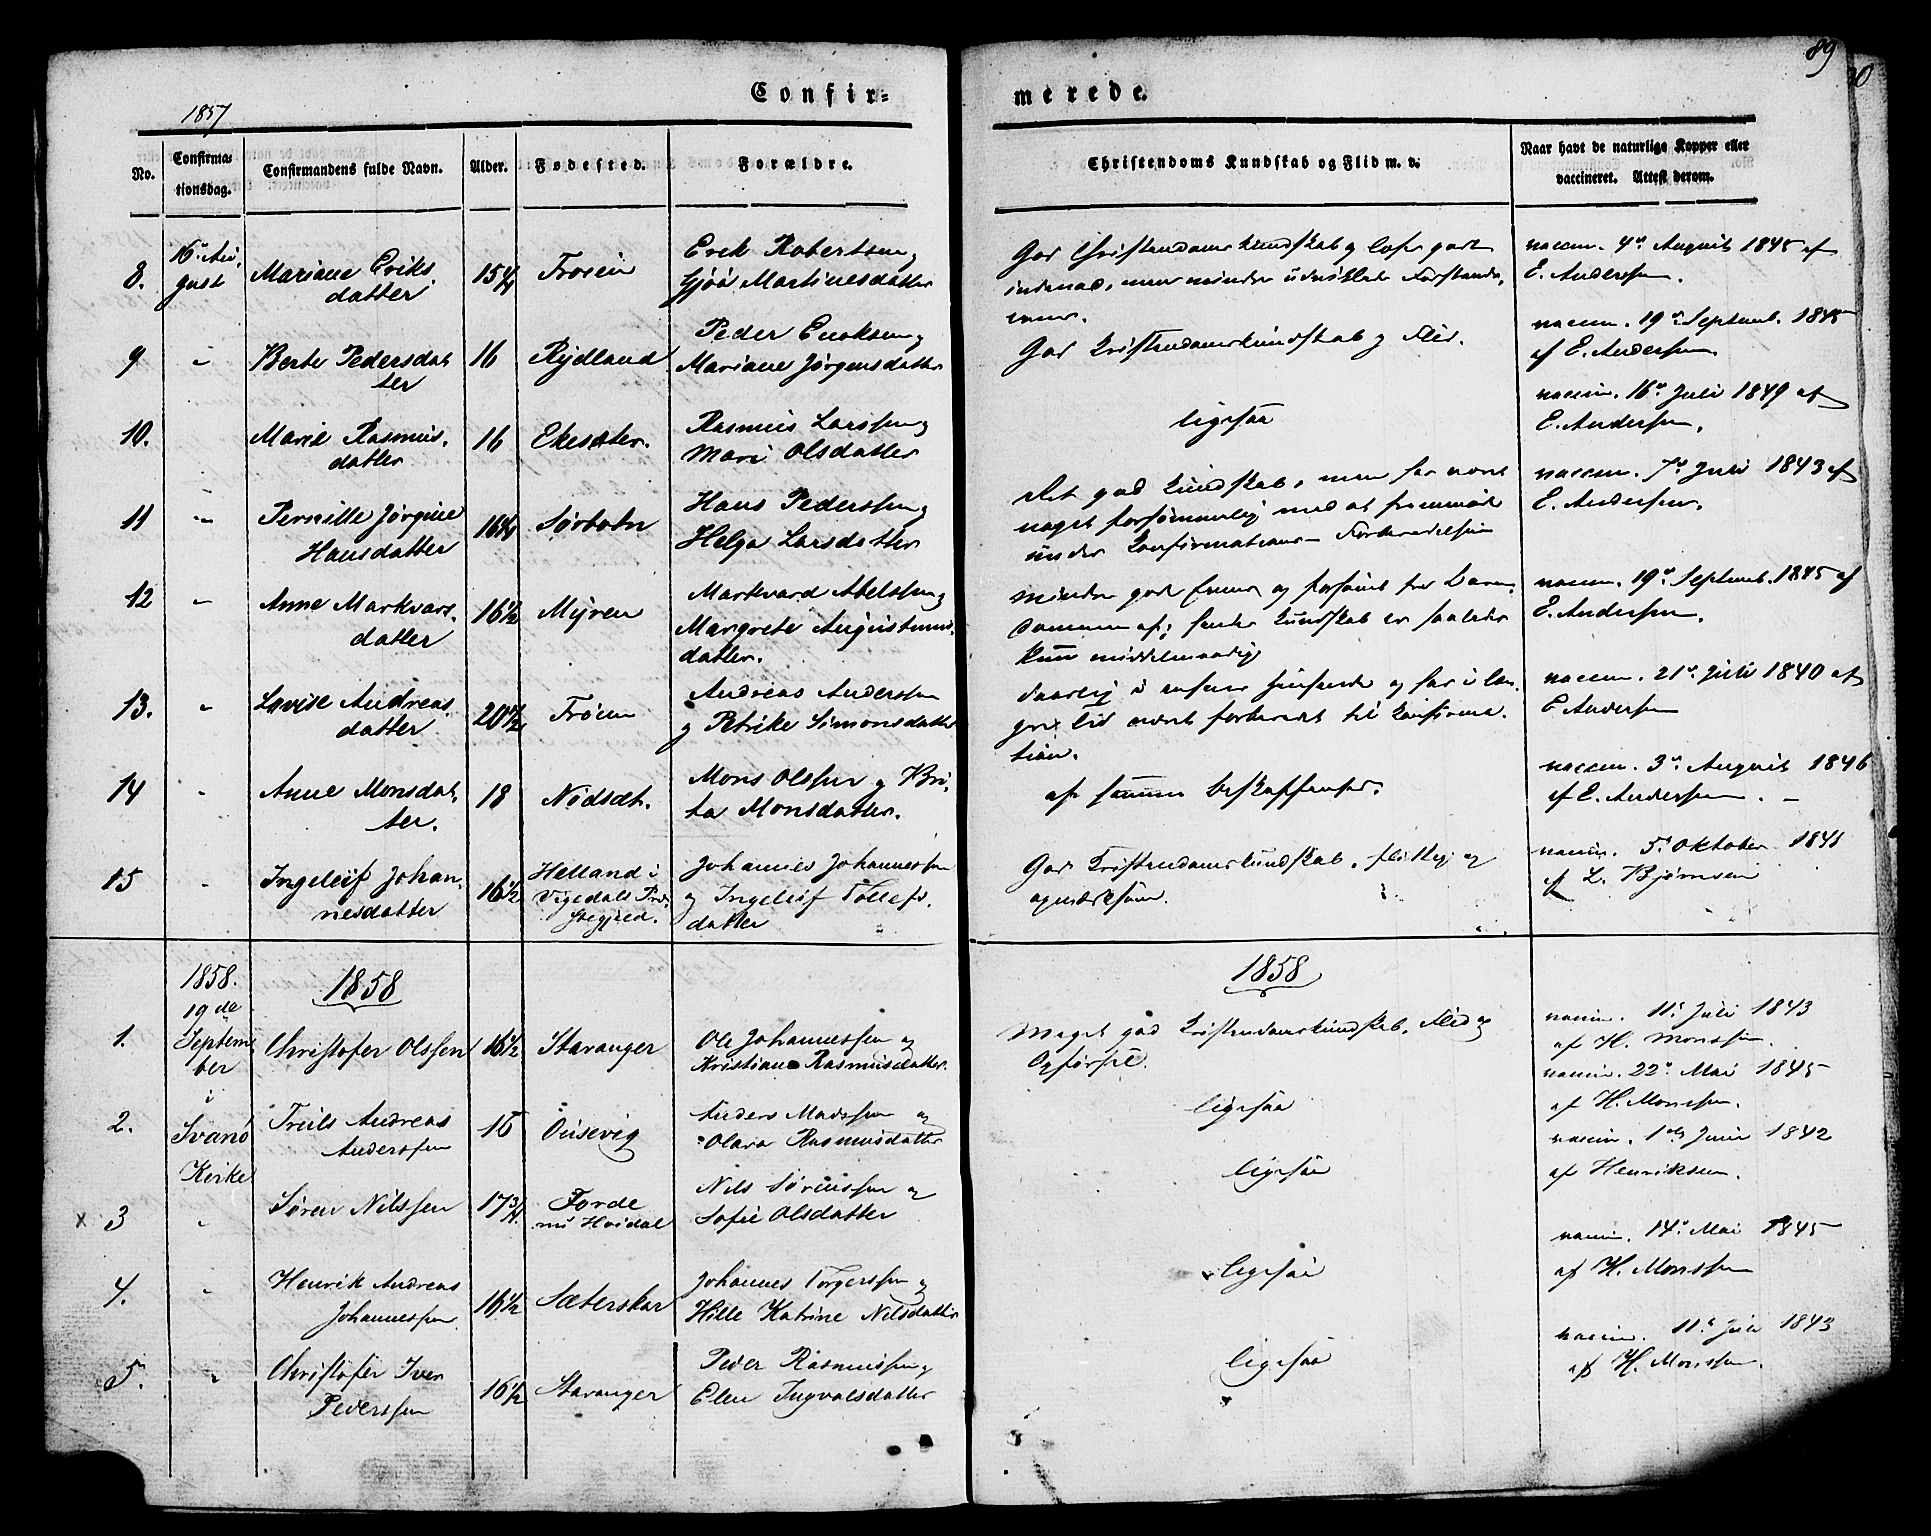 89
Confirmerede.
1857
No.
Confirmationsdag.
Confirmandens fulde Navn.
Alder.
Fødested.
Forældre.
Christendoms Kundskab og Flid m. v.
Naar havt de naturlige Kopper eller vaccineret. Attest derom.
8. 16de August Mariane Eriksdatter 15¼ Erik Robertsen og Martinesdatter
God Christendomskundskab og
vaccin. 4de August 1845 af E. Anderssen.
9 " Berte Pedersdatter 16 Rydland Peder og Mariane Jørgensdatter
God Kristendomskundskab og Flid.
vaccin. 19de Septemb. 1845 af E. Anderssen.
10. Marie Rasmusdatter 16 Ekesæter. Rasmus Larssen og Mari Olsdatter
ligesaa
vaccin. 16de Juli 1849 af E. Anderssen.
11 " Pernille Jørgine Hansdatter 16¼ Sørbotn Hans Pederssen og Helga Larsdatter
god Kundskab, men har været noget forsømmelig med at fremmøde under Konfirmations-Forberedelsen
vaccin. 7de Juli 1843 af E. Anderssen.
12 " Anne Markvarsdatter 16½ Myren Markvard Abelssen og Margrete Augustinusdatter.
mindre gode Evner og forsømt fra Barndommen af; hendes Kundskab er saaledes kun middelmaadig
vaccin. 19de Septemb. 1845 af E. Anderssen.
13. " Lovise Andreasdatter 20½ Trøen Andreas Anderssen og Petrike Simonsdatter
daarlig i enhver Henseende og har i længre Tid været forberedet til Konfirmation.
vaccin. 21de Juli 1840 af E Anderssen
14 " Anne Monsdatter. 18 Nødsæt. Mons Olssen og Brita Monsdatter.
af samme beskaffenhed.
vaccin. 3de August 1846 af E. Anderssen. –
15 " Ingeleif Johannesdatter 16½ Helland i Vigedals Præstegjeld. Johannes Johannessen og Ingeleif Tollefsdatter
God Kristendomskundskab, flittig og opmærksom.
vaccin. 5. Oktober 1841 af L. Bjørnsen
1858
1858
1. 1858. 19de September i Svanø Kirke Christofer Olssen 16½ Stavanger Ole Johannessen og Kristiane Rasmusdatter.
Meget god Kristendomskundskab, Flid og Opførsel.
vaccin. 11te Juli 1843 af H. Monssen.
2. Truls Andreas Anderssen 15 Ousevig Anders Madssen og Olava Rasmusdatter
ligesaa
vaccin. 22de Mai 1845 af H. Monssen.
x 3 " Søren Nilssen 17¾. Førde nu Høidal Nils Sørenssen og Sofie Olsdatter
ligesaa
vaccin. 1ste Juni 1842 af Henriksen.
4. " Henrik Andreas Johannessen 16½ Sæterskar Johannes Torgerssen og Hille Katrine Nilsdatter
ligesaa
vaccin. 14de Mai 1845 af H. Monssen
5. " Christofer Iver Pederssen 16½ Stavanger Peder Rasmussen og Elen Ingvalsdatter
ligesaa
vaccin. 11te Juli 1843 af H. Monssen.